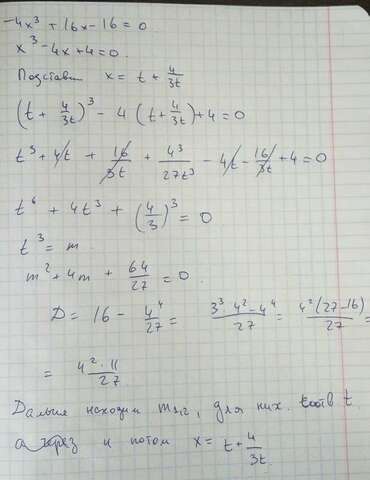 -4x³ + 16x - 16 = 0
x³ - 4x + 4 = 0.
Подставим x = t + 4/3t
(t + 4/3t)³ - 4 (t + 4/3t) + 4 = 0
t³ + 4t + 16/3t + 4³/27t³ - 4t - 16/3t + 4 = 0
t⁶ + 4t³ + (4/3)³ = 0
t³ = m.
m² + 4m + 64/27 = 0.
D = 16 - 4⁴/27 = 3³·4² - 4⁴/27 = 4²(27-16)/27 =
= 4²·11/27
Дальше находим m₁,₂, для них t
а и потом x = t + 4/3t.